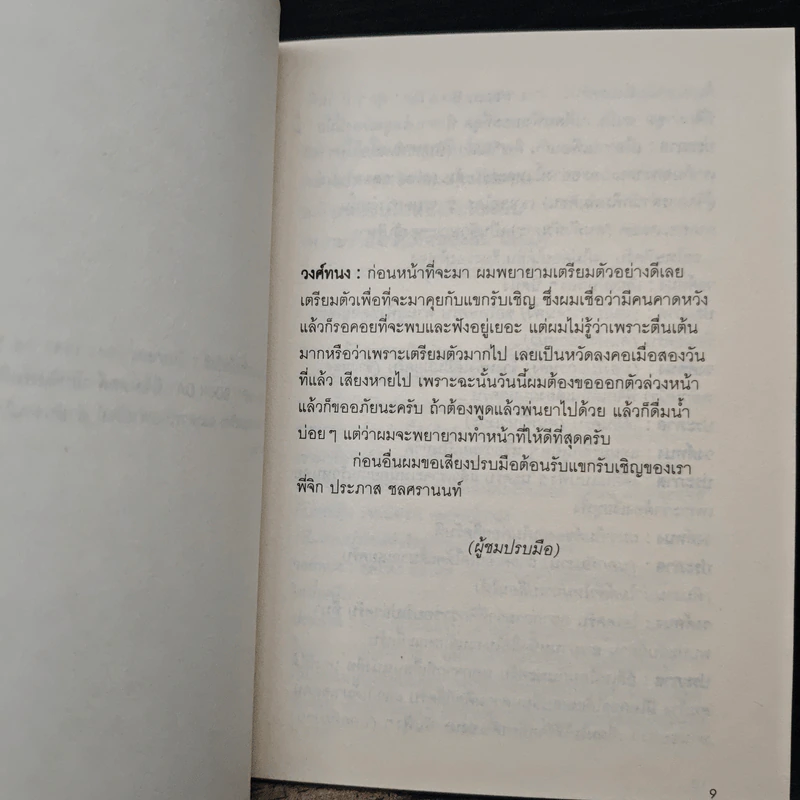 วงศ์ทนง : ก่อนหน้าที่จะมา ผมพยายามเตรียมตัวอย่างดีเลย
เตรียมตัวเพื่อที่จะมาคุยกับแขกรับเชิญ ซึ่งผมเชื่อว่ามีคนคาดหวัง
แล้วก็รอคอยที่จะพบและฟังอยู่เยอะ แต่ผมไม่รู้ว่าเพราะตื่นเต้น
มากหรือว่าเพราะเตรียมตัวมากไป เลยเป็นหวัดลงคอเมื่อสองวัน
ที่แล้ว เสียงหายไป เพราะฉะนั้นวันนี้ผมต้องขอออกตัวล่วงหน้า
แล้วก็ขออภัยนะครับ ถ้าต้องพูดแล้วพ่นยาไปด้วย แล้วก็ดื่มน้ำ
บ่อยๆ แต่ว่าผมจะพยายามทำหน้าที่ให้ดีที่สุดครับ
ก่อนอื่นผมขอเสียงปรบมือต้อนรับแขกรับเชิญของเรา
พี่จิก ประภาส ชลศรานนท์
(ผู้ชมปรบมือ)
9